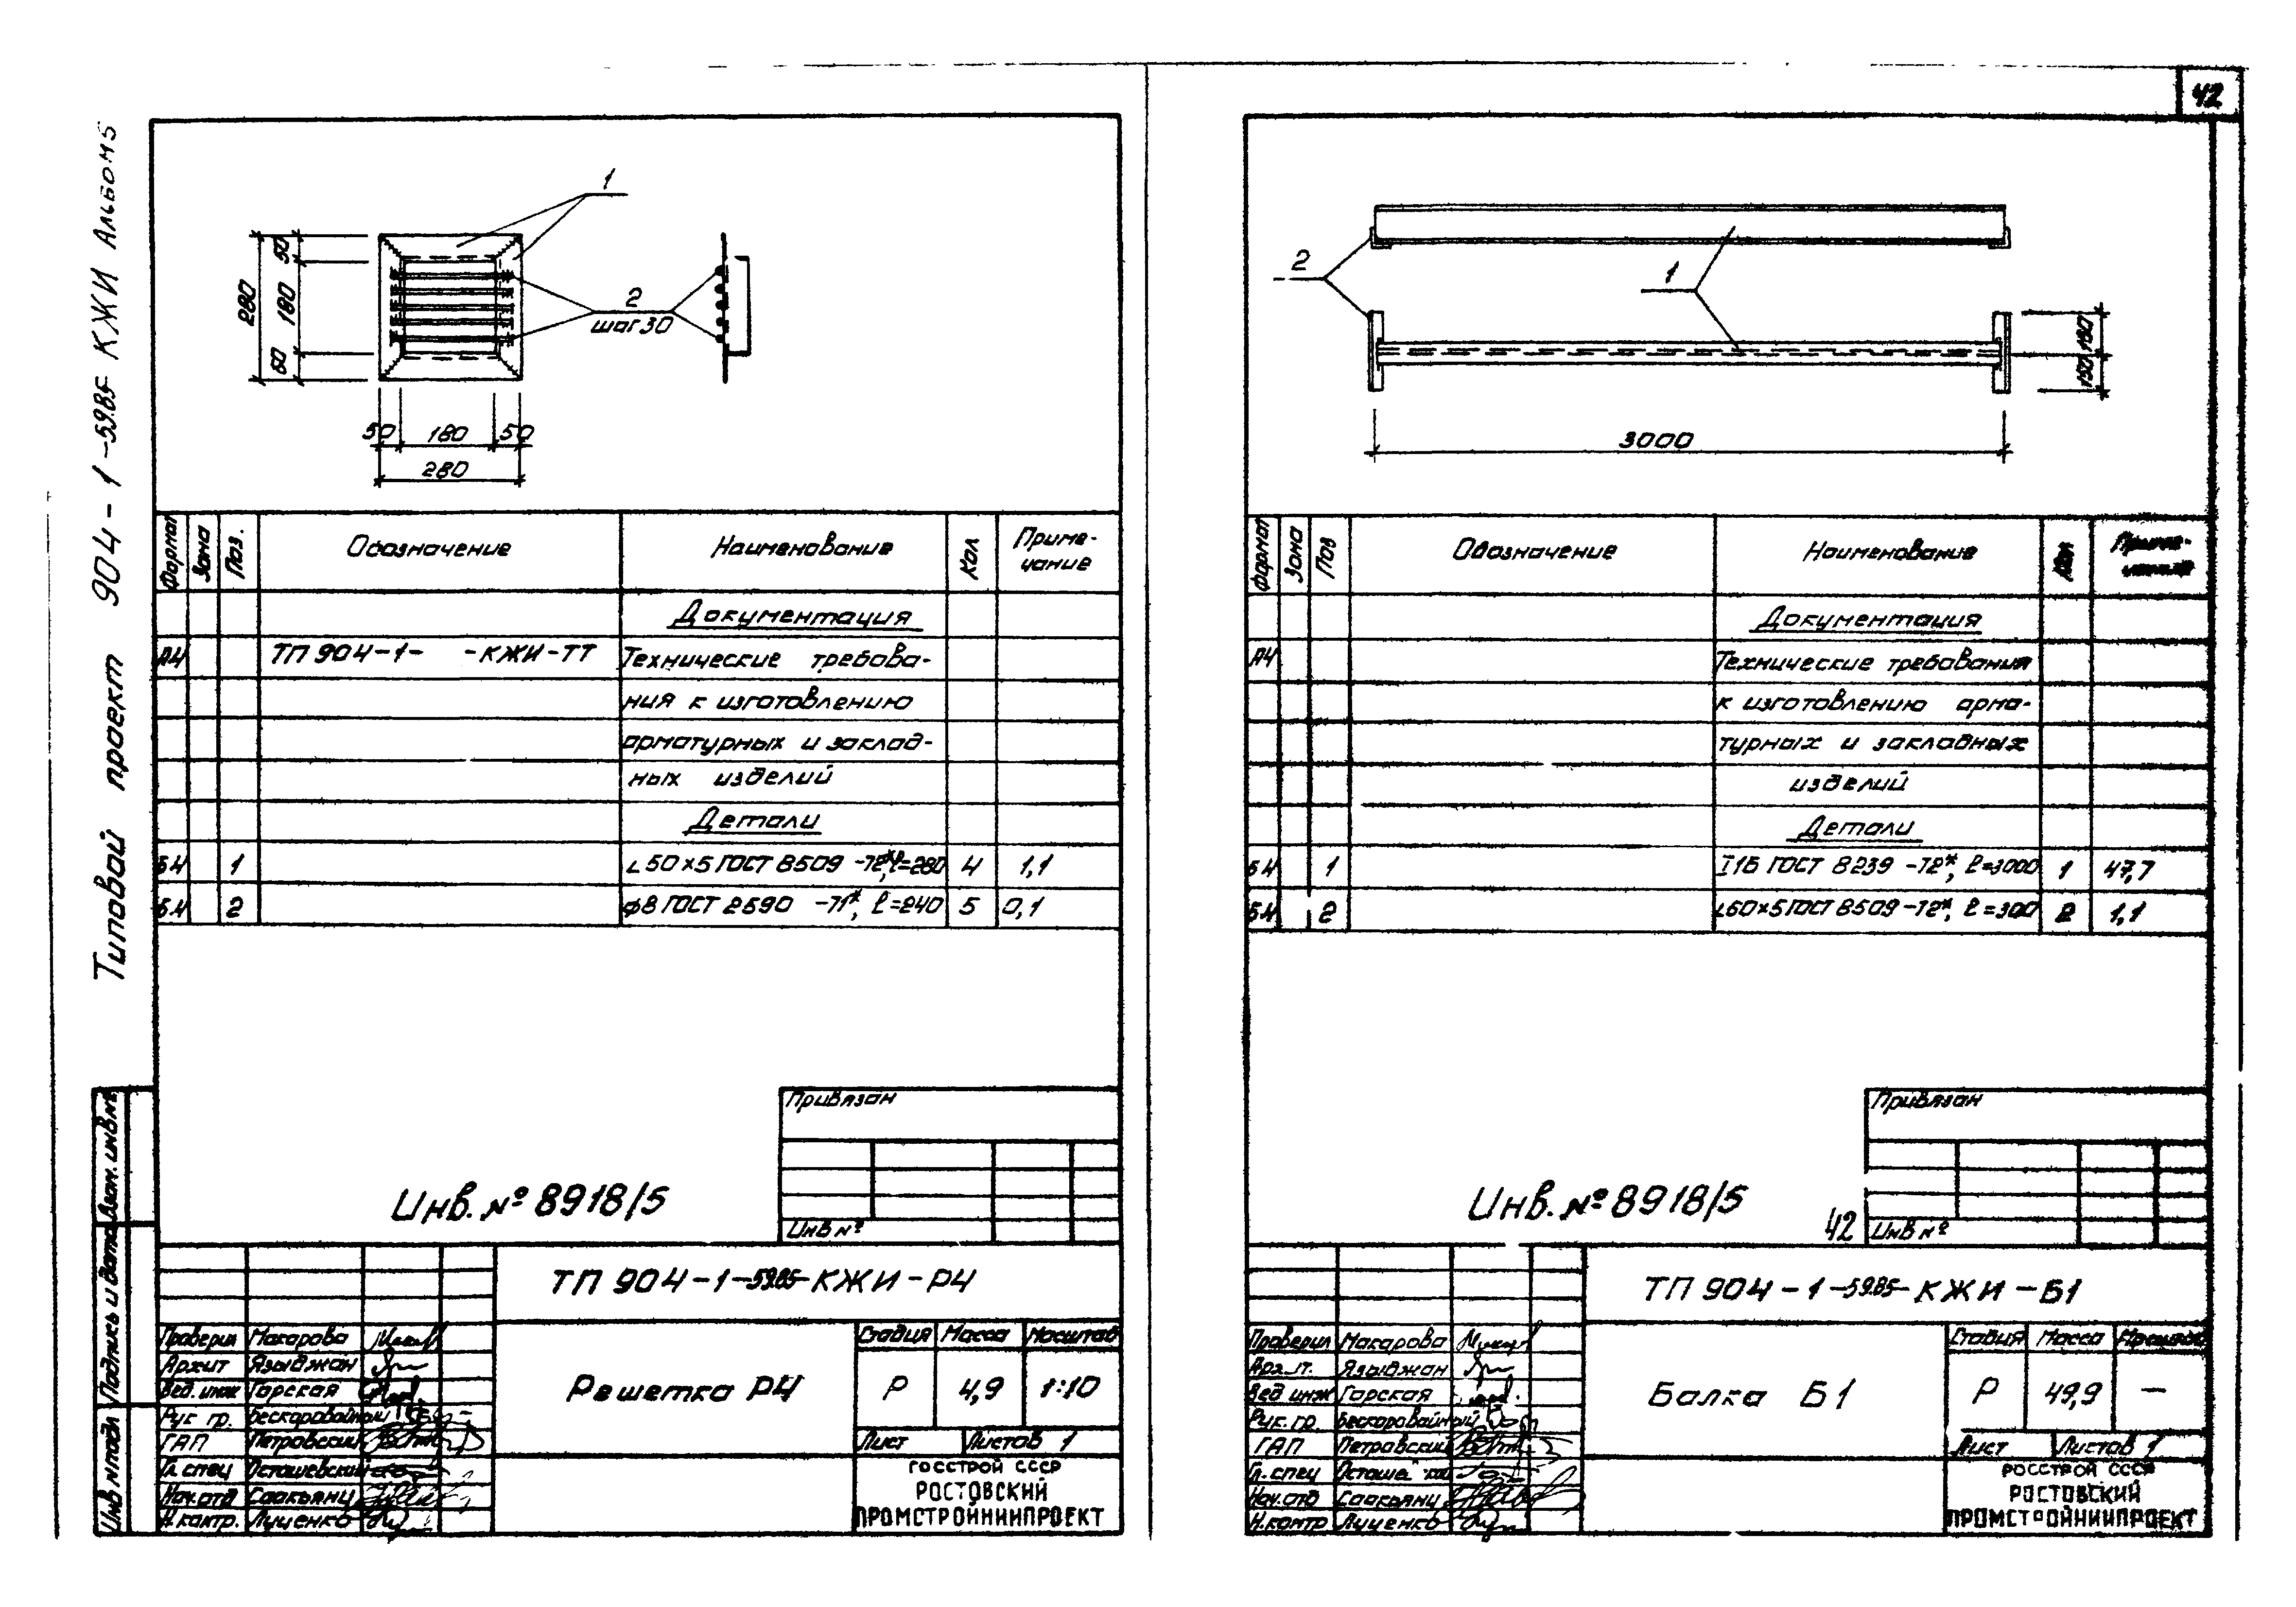 42
Типовой проект 904-1-59.85 КЖИ Альбом 5
1
2
шаг 30
280
50
180
50
50 180 50
280
Формат Зона Поз. Обозначение Наименование Кол Приме-
чание
Документация
А4 ТП 904-1- -КЖИ-ТТ Технические требова-
ния к изготовлению
арматурных и заклад-
ных изделий
Детали
БЧ 1 L 50×5 ГОСТ 8509-72*, ℓ=280 4 1,1
БЧ 2 φ8 ГОСТ 2590-71*, ℓ=240 5 0,1
Привязан
Инв. № 8918/5
Инв №
ТП 904-1-59.85-КЖИ-Р4
Проверил Макарова
Архит Языджан
Вед. инж Горская
Рук гр. Бескоровайный
ГАП Петровский
Гл. спец Осташевский
Нач. отд Саакьянц
Н. контр. Луценко
Решетка Р4
Стадия Масса Масштаб
Р 4,9 1:10
Лист Листов 1
ГОССТРОЙ СССР
РОСТОВСКИЙ
ПРОМСТРОЙНИИПРОЕКТ
Инв № подл Подпись и дата Взам. инв. №
2
1
150
150
3000
Формат Зона Поз Обозначение Наименование Кол Приме-
чание
Документация
А4 Технические требования
к изготовлению арма-
турных и закладных
изделий
Детали
БЧ 1 I16 ГОСТ 8239-72*, ℓ=3000 1 47,7
БЧ 2 L50×5 ГОСТ 8509-72*, ℓ=300 2 1,1
Привязан
Инв. № 8918/5
42
Инв №
ТП 904-1-59.85-КЖИ-Б1
Проверил Макарова
Языджан
Вед инж Горская
Рук. гр. Бескоровайный
ГАП Петровский
Гл. спец
Нач. отд Саакьянц
Н. контр Луценко
Балка Б1
Стадия Масса Масштаб
Р 49,9 —
Лист Листов 1
ГОССТРОЙ СССР
РОСТОВСКИЙ
ПРОМСТРОЙНИИПРОЕКТ